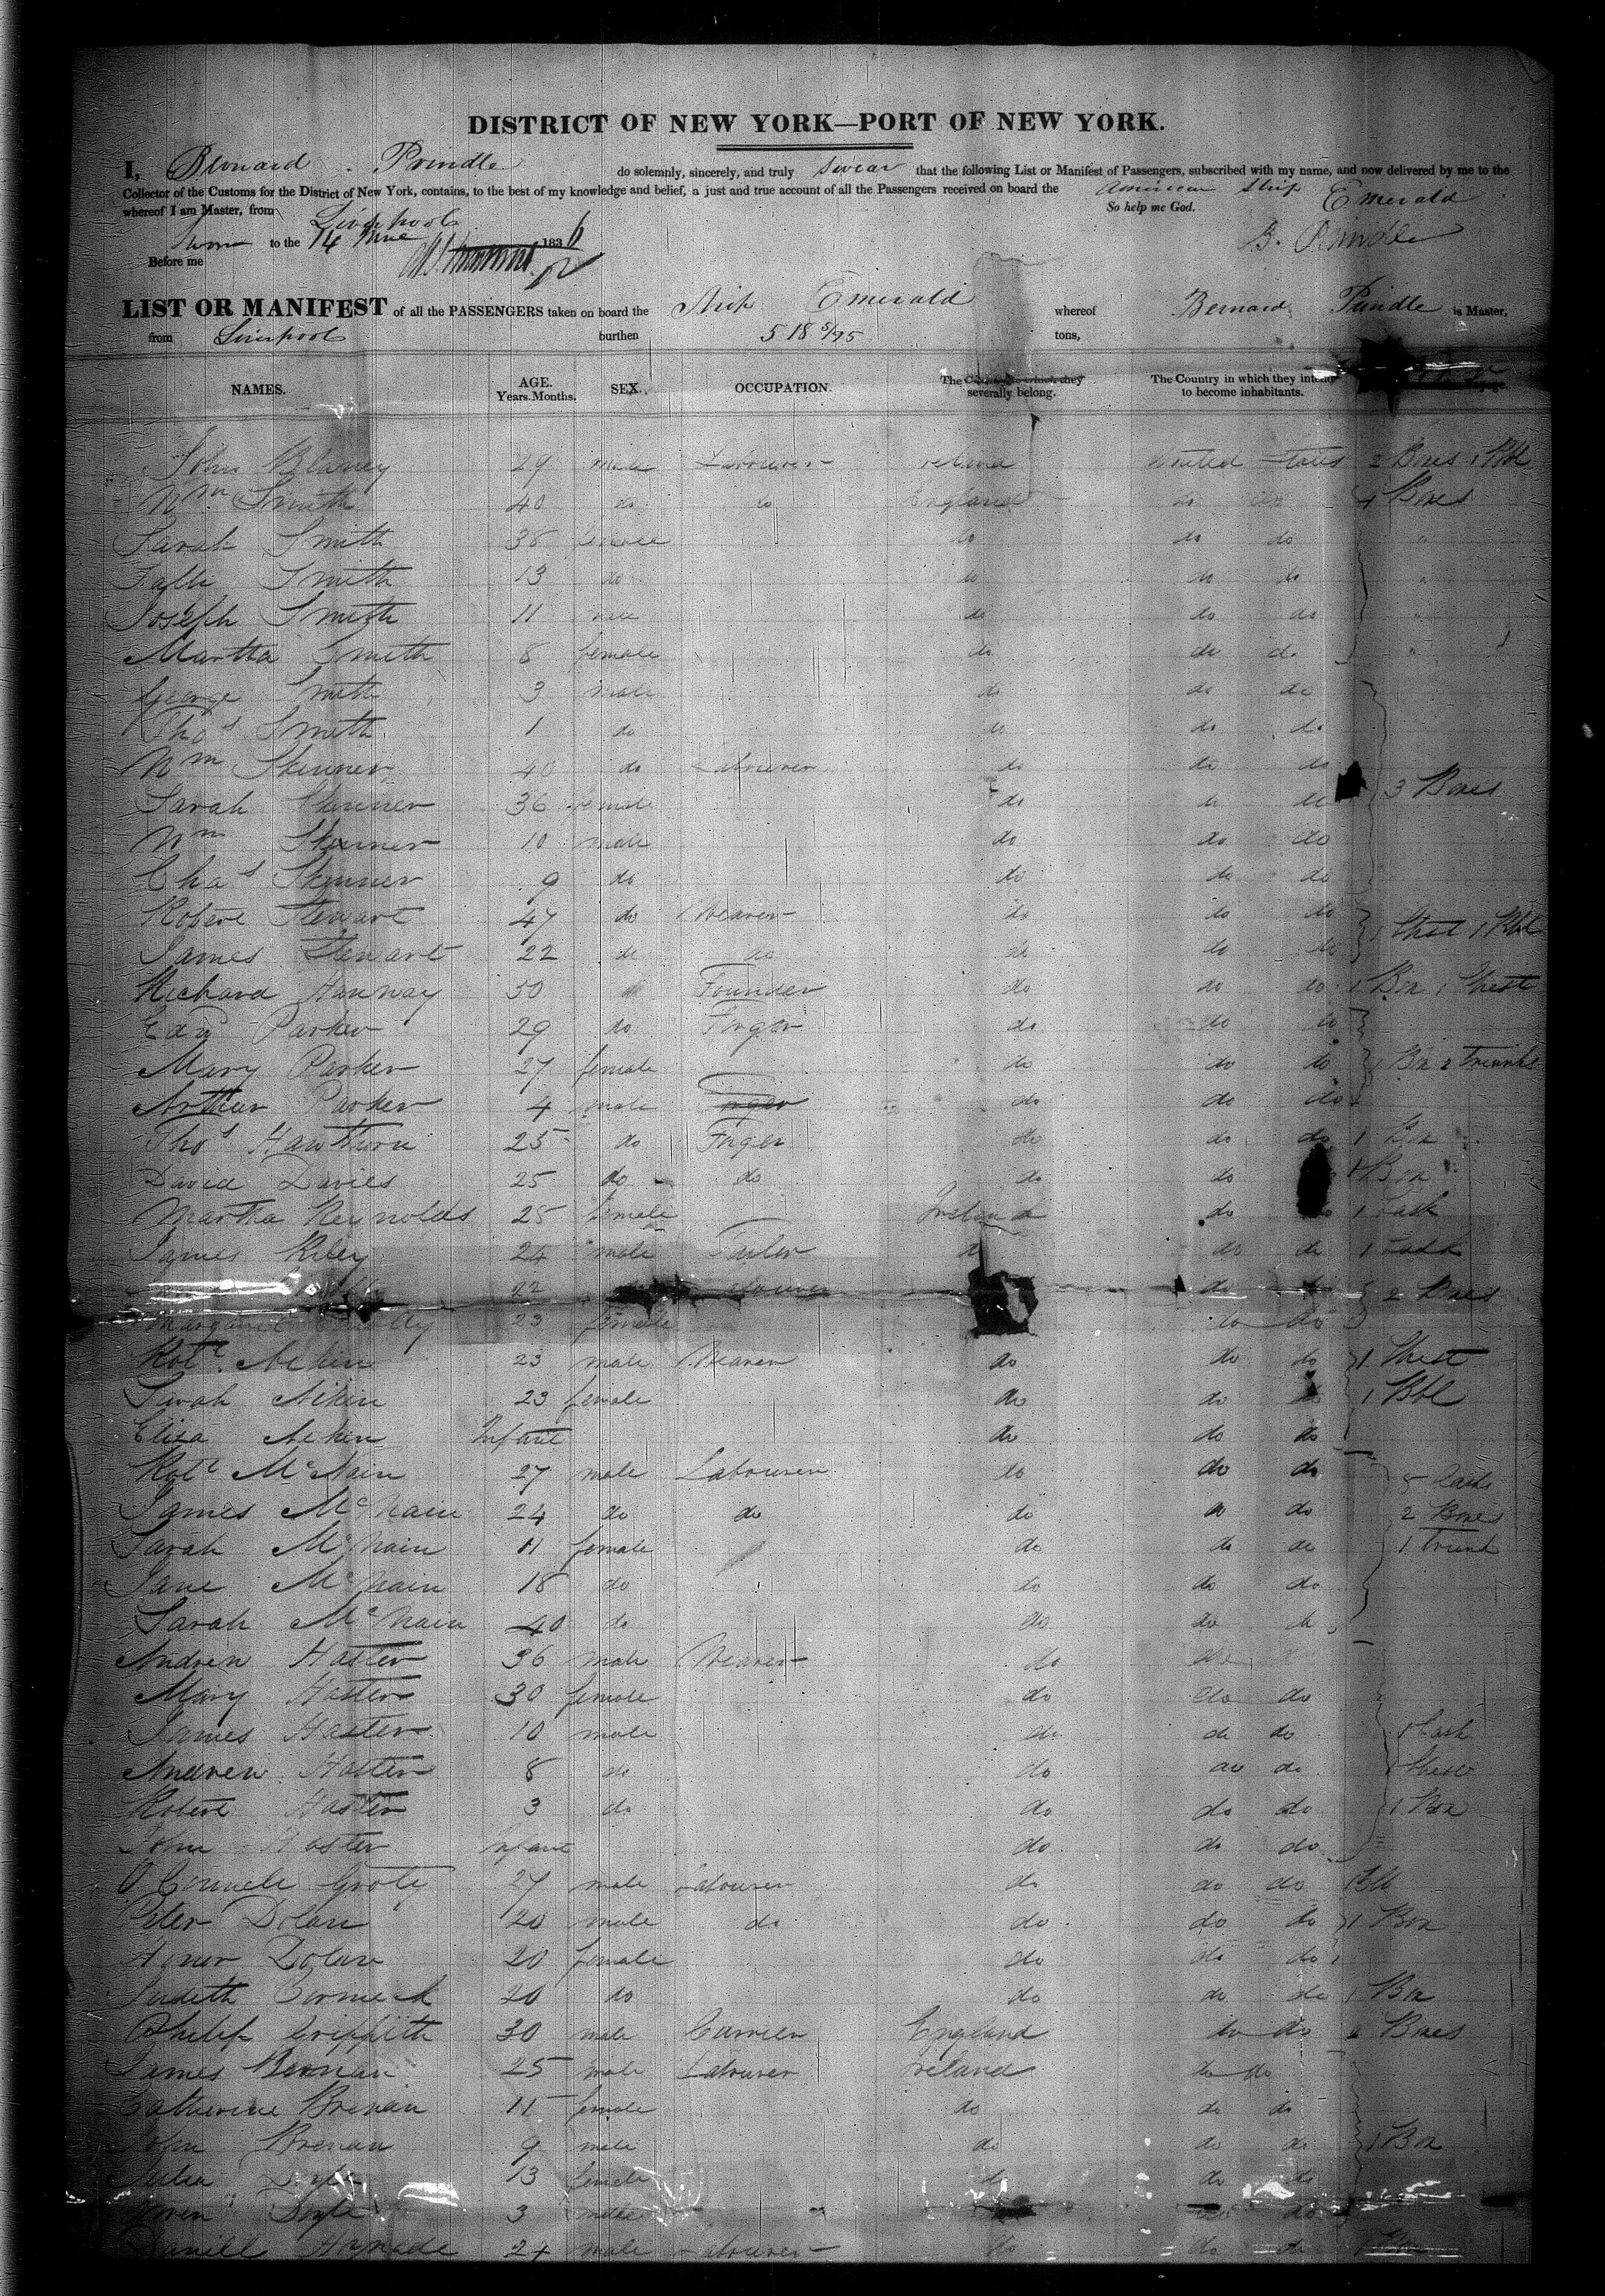 DISTRICT OF NEW YORK—PORT OF NEW YORK.
I, Bernard Prindle do solemnly, sincerely, and truly swear that the following List or Manifest of Passengers, subscribed with my name, and now delivered by me to the
Collector of the Customs for the District of New York, contains, to the best of my knowledge and belief, a just and true account of all the Passengers received on board the American Ship Emerald
whereof I am Master, from Liverpool So help me God.
Sworn to the 14 June 1836 B. Prindle
Before me
LIST OR MANIFEST of all the PASSENGERS taken on board the Ship Emerald whereof Bernard Prindle is Master,
from Liverpool burthen 518 5/95 tons,
NAMES. AGE. Years. Months. SEX. OCCUPATION. The severally belong. The Country in which they intend to become inhabitants.
John Blaney 29 male Labourer reland United States 2 Boxes 1 Bbl
Wm Smith 40 do do England do do 4 Boxes
Sarah Smith 36 female do do do "
Smith 13 do do do do "
Joseph Smith 11 male do do do "
Martha Smith 8 female do do do "
George Smith 3 male do do do
Thos Smith 1 do do do do
Wm Skinner 40 do Labourer do do do
Sarah Skinner 36 female do do do 3 Boxes
Wm Skinner 10 male do do do
Chas Skinner 9 do do do do
Robert Stewart 47 do Weaver do do do
James Stewart 22 do do do do do 1 Chest 1 Bbl
Richard Hanway 50 do Founder do do do 1 Box 1 Chest
Edwd Parker 29 do Forger do do do
Mary Parker 27 female do do do 1 Box 2 Trunks
Arthur Parker 4 male Forger do do do
Thos Hawthorn 25 do Forger do do do 1 Box
David Davies 25 do do do do do 1 Box
Martha Reynolds 25 female Ireland do do 1 Cask
James Riley 24 male Tailor do do do 1 Cask
22 Labourer do do 2 Boxes
Margaret 23 female do do
Robt Aiken 23 male Weaver do do do 1 Chest
Sarah Aiken 23 female do do do 1 Bbl
Eliza Aiken Infant do do do
Robt McNain 27 male Labourer do do do 5 Casks
James McNain 24 do do do do do 2 Boxes
Sarah McNain 11 female do do do 1 Trunk
Jane McNain 18 do do do do
Sarah McNain 40 do do do do
Andrew Haster 36 male Weaver do do
Mary Haster 30 female do do do
James Haster 10 male do do do 1 Cask
Andrew Haster 8 do do do do 1 Chest
Robert Haster 3 do do do do 1 Box
John Haster Infant do do do
27 male Labourer do do do Bbl
Peter Dolan 20 male do do do do 1 Box
Honor Dolan 20 female do do do
Judith Cormick 20 do do do do 1 Box
Philip Griffith 30 male Currier England do do 6 Boxes
James Brenan 25 male Labourer Ireland do do
Catherine Brenan 11 female do do do
John Brenan 9 male do do do 1 Box
Julia 13 female do do do
Owen 3 male do do
Daniel 24 male Labourer do do do 1 Box